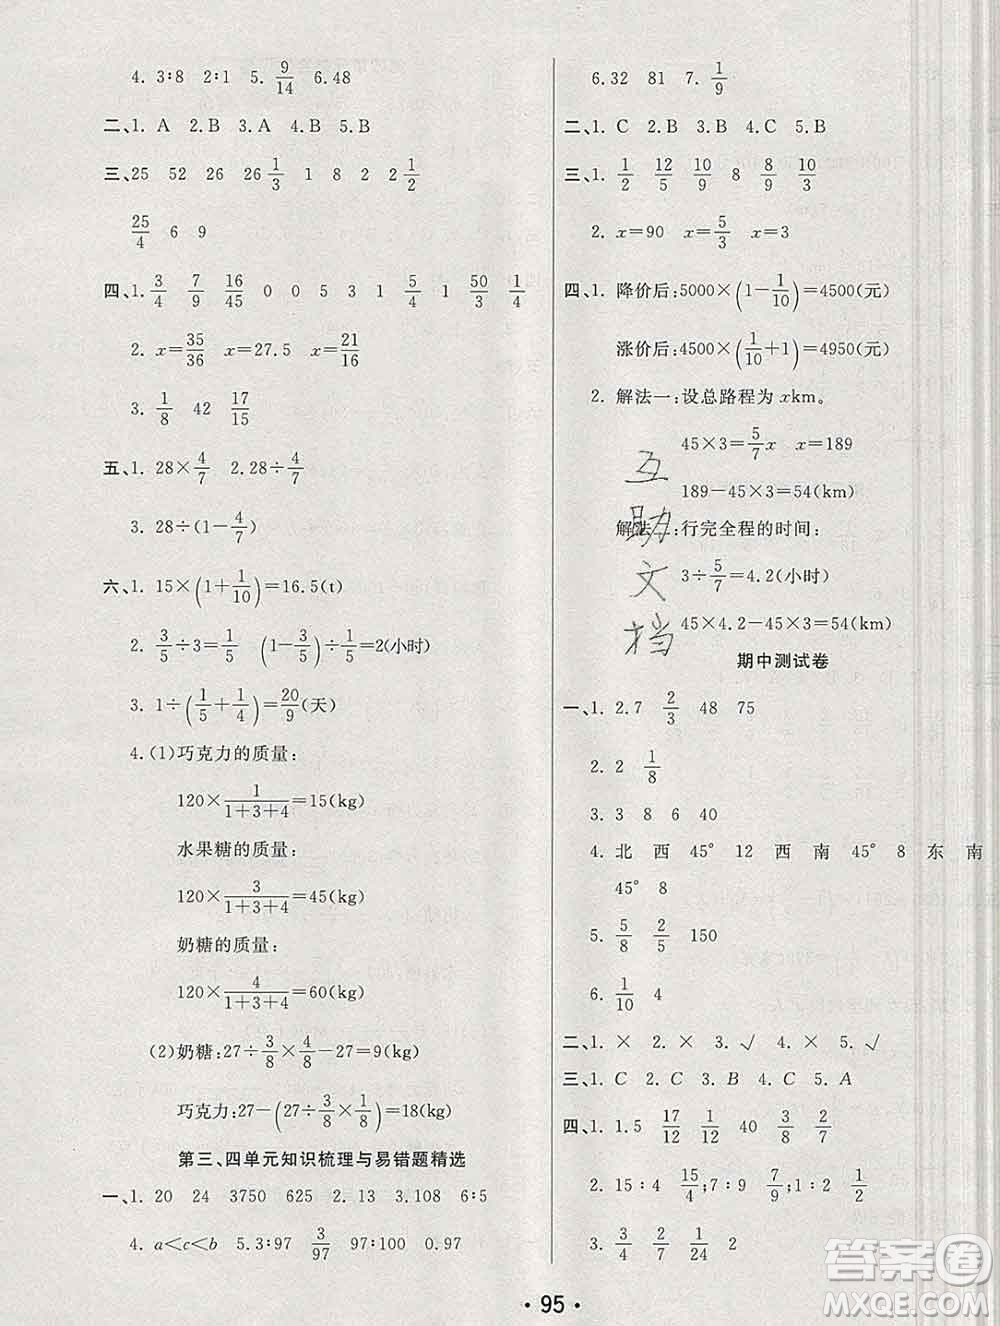 4. 3∶8 2∶1 5. 9/14 6. 48
二、1. A 2. B 3. A 4. B 5. B
三、25 52 26 26 1/3 1 8 2 2 1/2
25/4 6 9
四、1. 3/4 7/9 16/45 0 0 5 3 1 5/4 1 50/3 1/4
2. x=35/36 x=27.5 x=21/16
3. 1/8 42 17/15
五、1. 28×4/7 2. 28÷4/7
3. 28÷(1-4/7)
六、1. 15×(1+1/10)=16.5(t)
2. 3/5÷3=1/5 (1-3/5)÷1/5=2(小时)
3. 1÷(1/5+1/4)=20/9(天)
4. (1)巧克力的质量:
120×1/(1+3+4)=15(kg)
水果糖的质量:
120×3/(1+3+4)=45(kg)
奶糖的质量:
120×4/(1+3+4)=60(kg)
(2)奶糖:27÷3/8×4/8-27=9(kg)
巧克力:27-(27÷3/8×1/8)=18(kg)
第三、四单元知识梳理与易错题精选
一、1. 20 24 3750 625 2. 13 3. 108 6∶5
4. a<c<b 5. 3∶97 3/97 97∶100 0.97
6. 32 81 7. 1/9
二、1. C 2. B 3. B 4. C 5. B
三、1. 1/2 12/5 10/9 8 8/9 10/3
2. x=90 x=5/3 x=3
四、1. 降价后:5000×(1-1/10)=4500(元)
涨价后:4500×(1/10+1)=4950(元)
2. 解法一:设总路程为xkm。
45×3=5/7x x=189
189-45×3=54(km)
解法二:行完全程的时间:
3÷5/7=4.2(小时)
45×4.2-45×3=54(km)
互助文档
期中测试卷
一、1. 2.7 2/3 48 75
2. 2 1/8
3. 3 8 6 40
4. 北 西 45° 12 西 南 45° 8 东 南
45° 8
5. 5/8 2/5 150
6. 1/10 4
二、1. × 2. × 3. √ 4. × 5. √
三、1. C 2. C 3. B 4. C 5. A
四、1. 1.5 17/12 1/12 8/7 5/8
2. 15∶4 15/4; 7∶9 7/9; 1∶2 1/2
3. 3/4 1/2 1/24 2
·95·
答案圈
MXQE.COM